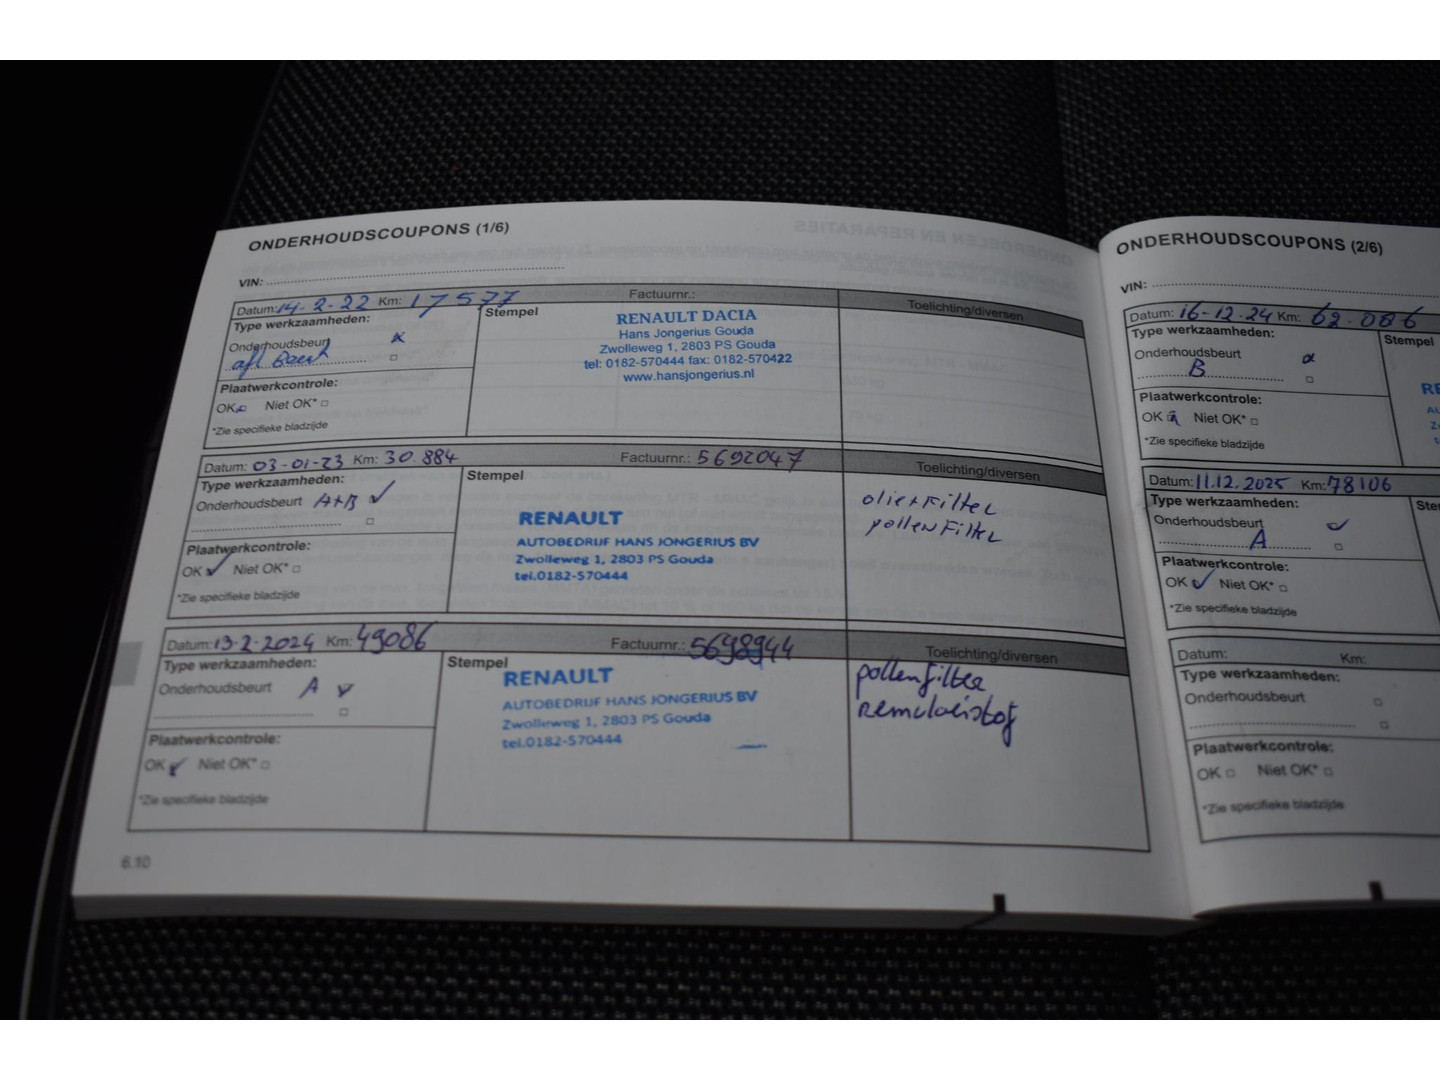 ONDERHOUDSCOUPONS (1/6)
VIN:
Datum: 14-2-22 Km: 17577 Factuurnr.: Toelichting/diversen
Type werkzaamheden: Stempel
Onderhoudsbeurt
afl Beurt
RENAULT DACIA
Hans Jongerius Gouda
Zwolleweg 1, 2803 PS Gouda
tel: 0182-570444 fax: 0182-570422
www.hansjongerius.nl
Plaatwerkcontrole:
OK Niet OK*
*Zie specifieke bladzijde
Datum: 03-01-23 Km: 30.884 Factuurnr.: 5692047 Toelichting/diversen
Type werkzaamheden: Stempel
Onderhoudsbeurt A+B
RENAULT
AUTOBEDRIJF HANS JONGERIUS BV
Zwolleweg 1, 2803 PS Gouda
tel.0182-570444
olie+Filter
pollenFilter
Plaatwerkcontrole:
OK Niet OK*
*Zie specifieke bladzijde
Datum: 13-2-2024 Km: 49086 Factuurnr.: 5698944 Toelichting/diversen
Type werkzaamheden: Stempel
Onderhoudsbeurt A
RENAULT
AUTOBEDRIJF HANS JONGERIUS BV
Zwolleweg 1, 2803 PS Gouda
tel.0182-570444
pollenfilter
Remvloeistof
Plaatwerkcontrole:
OK Niet OK*
*Zie specifieke bladzijde
6.10
ONDERHOUDSCOUPONS (2/6)
VIN:
Datum: 16-12-24 Km: 62.086
Type werkzaamheden: Stempel
Onderhoudsbeurt
B
Plaatwerkcontrole:
OK Niet OK*
*Zie specifieke bladzijde
Datum: 11.12.2025 Km: 78106
Type werkzaamheden:
Onderhoudsbeurt
A
Plaatwerkcontrole:
OK Niet OK*
*Zie specifieke bladzijde
Datum: Km:
Type werkzaamheden:
Onderhoudsbeurt
Plaatwerkcontrole:
OK Niet OK*
*Zie specifieke bladzijde